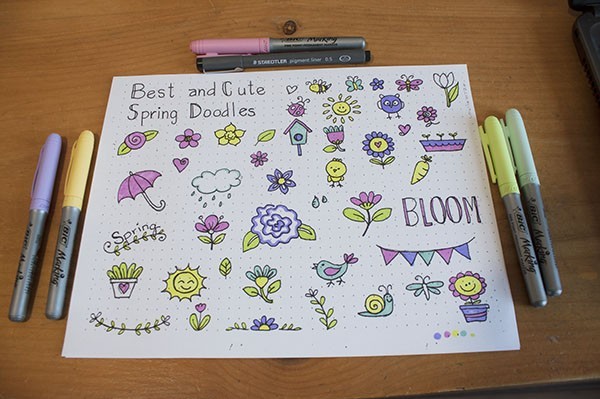 BIC Marking
STAEDTLER pigment liner 0.5
Best and Cute
Spring Doodles
Spring
BLOOM
BIC Marking
BIC Marking
BIC Marking